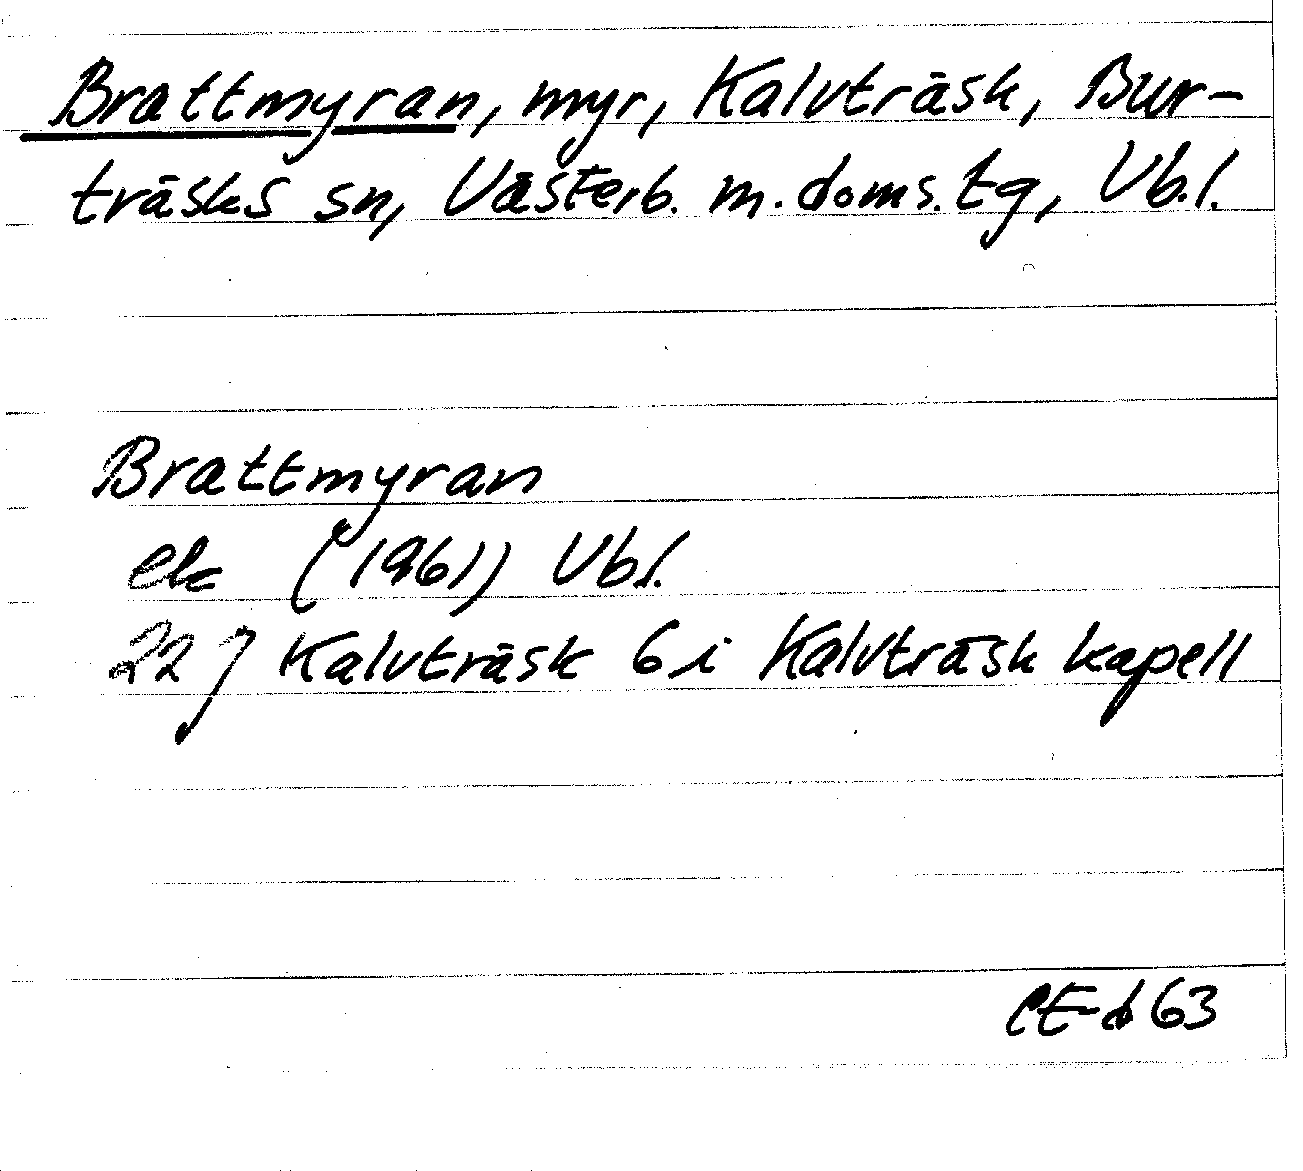 Brattmyran, myr, Kalvträsk, Bur-
träsks sn, Västerb. m. doms. tg, Vb.l.
Brattmyran
ek (1961) Vbl.
22 J Kalvträsk 6 i Kalvträsk kapell
63